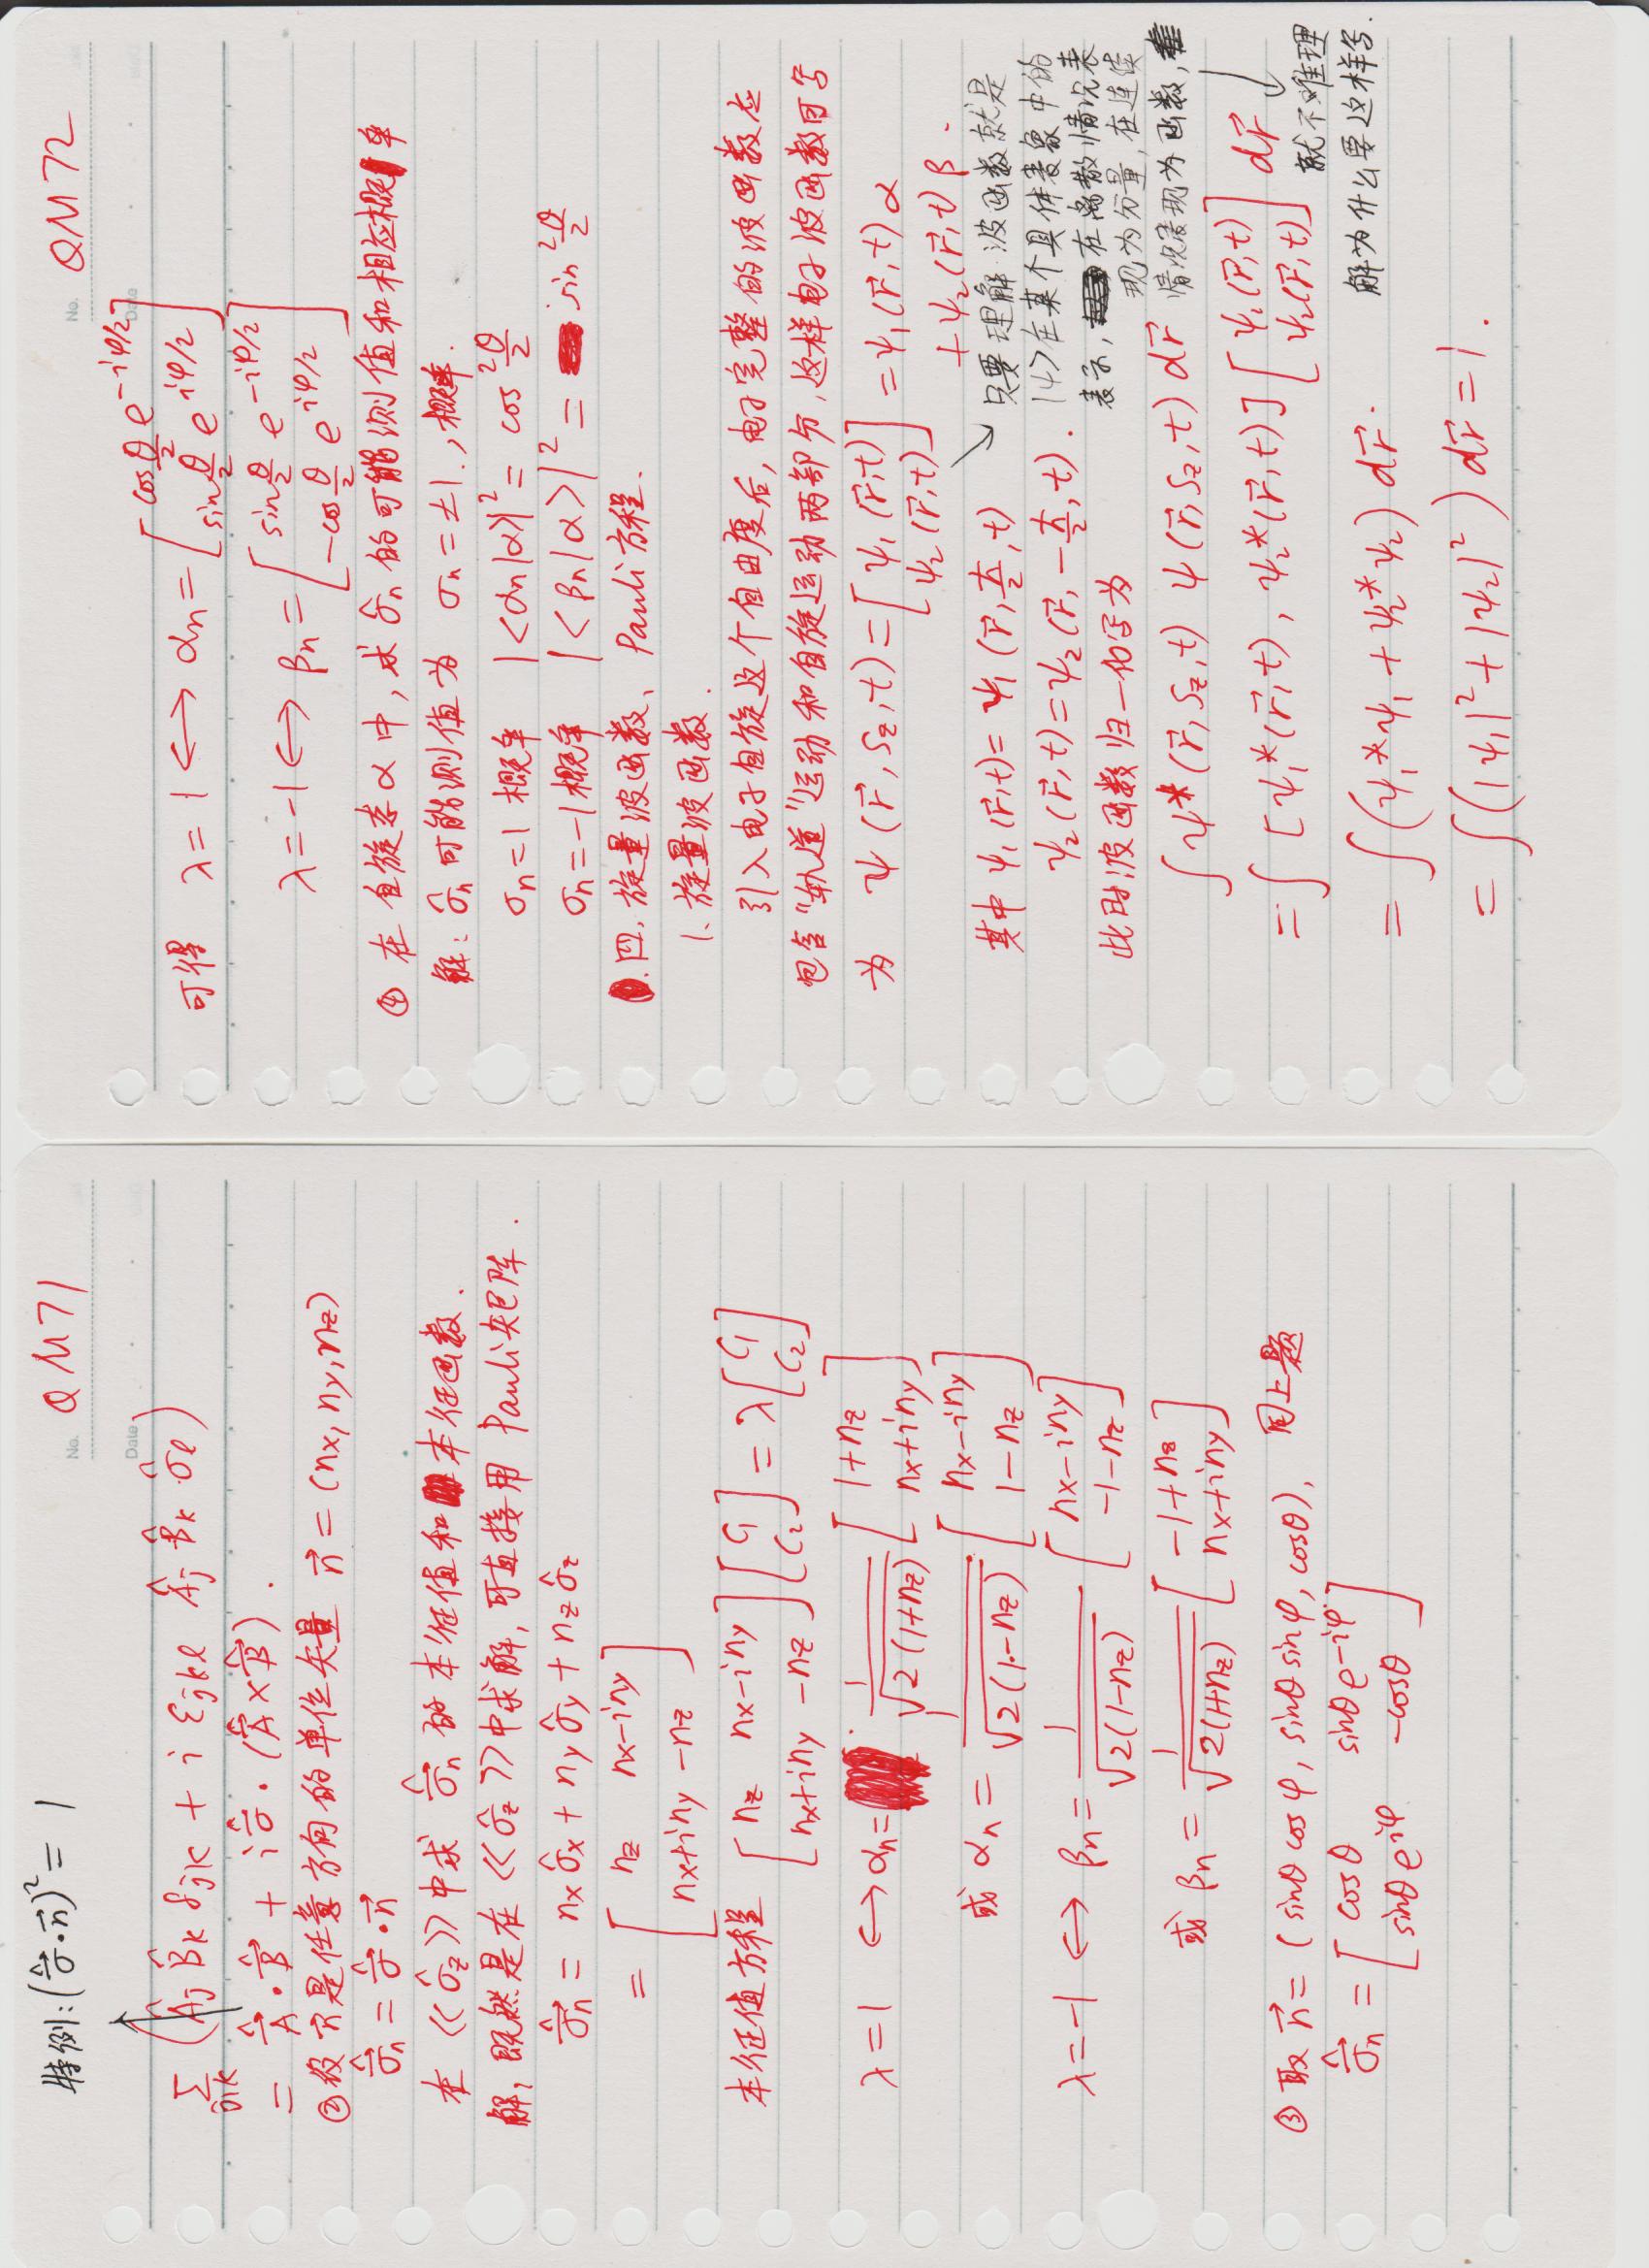 特例:(σ̂⃗·n⃗)² = 1
No. QM71
Date
Σ_{jk} (Â_j B̂_k δ_{jk} + i ε_{jkl} Â_j B̂_k σ̂_l)
= Â⃗·B̂⃗ + i σ̂⃗·(Â⃗×B̂⃗).
②设n⃗是任意方向的单位矢量 n⃗ = (nx, ny, nz)
σ̂⃗n = σ̂⃗·n⃗
在《σ̂z》中求 σ̂⃗n 的本征值和本征函数.
解, 既然是在《σ̂z》中求解, 可直接用 Pauli矩阵.
σ̂⃗n = nx σ̂x + ny σ̂y + nz σ̂z
= [ nz nx−iny
nx+iny −nz ]
本征值方程 [ nz nx−iny ; nx+iny −nz ] [ C1 ; C2 ] = λ [ C1 ; C2 ]
λ = 1 ↔ αn = 1/√(2(1+nz)) [ 1+nz ; nx+iny ]
或 αn = 1/√(2(1−nz)) [ nx−iny ; 1−nz ]
λ = −1 ↔ βn = 1/√(2(1−nz)) [ nx−iny ; −1−nz ]
或 βn = 1/√(2(1+nz)) [ −1+nz ; nx+iny ]
③ 取 n⃗ = (sinθ cosφ, sinθ sinφ, cosθ), 同上题
σ̂⃗n = [ cosθ sinθ e^{−iφ} ; sinθ e^{iφ} −cosθ ]
No. QM72
Date
可得 λ = 1 ↔ αn = [ cos θ/2 e^{−iφ/2} ; sin θ/2 e^{iφ/2} ]
λ = −1 ↔ βn = [ sin θ/2 e^{−iφ/2} ; −cos θ/2 e^{iφ/2} ]
④ 在自旋态α中, 求 σ̂n 的可能测值和相应概率
解: σ̂n 可能测值为 σn = ±1., 概率.
σn = 1 概率 |<αn|α>|² = cos² θ/2
σn = −1 概率 |<βn|α>|² = sin² θ/2
四. 旋量波函数、Pauli方程.
1、旋量波函数.
引入电子自旋这个自由度后, 电子完整的波函数应
包含“轨道”运动和自旋运动两部分, 这样电子波函数可写
为 ψ(r⃗, Sz, t) = [ ψ1(r⃗,t) ; ψ2(r⃗,t) ] = ψ1(r⃗,t) α
+ ψ2(r⃗,t) β.
其中 ψ1(r⃗,t) = ψ1(r⃗, ħ/2, t)
ψ2(r⃗,t) = ψ2(r⃗, −ħ/2, t).
只要理解波函数就是
|ψ>在某个具体表象中的
表示, 在离散情况表
现为分量, 在连续
情况表现为函数,
就不难理
解为什么要这样写.
此时波函数归一化写为
∫ ψ*(r⃗, Sz, t) ψ(r⃗, Sz, t) dr⃗
= ∫ [ψ1*(r⃗,t), ψ2*(r⃗,t)] [ ψ1(r⃗,t) ; ψ2(r⃗,t) ] dr⃗
= ∫ (ψ1*ψ1 + ψ2*ψ2) dr⃗.
= ∫ (|ψ1|² + |ψ2|²) dr⃗ = 1.